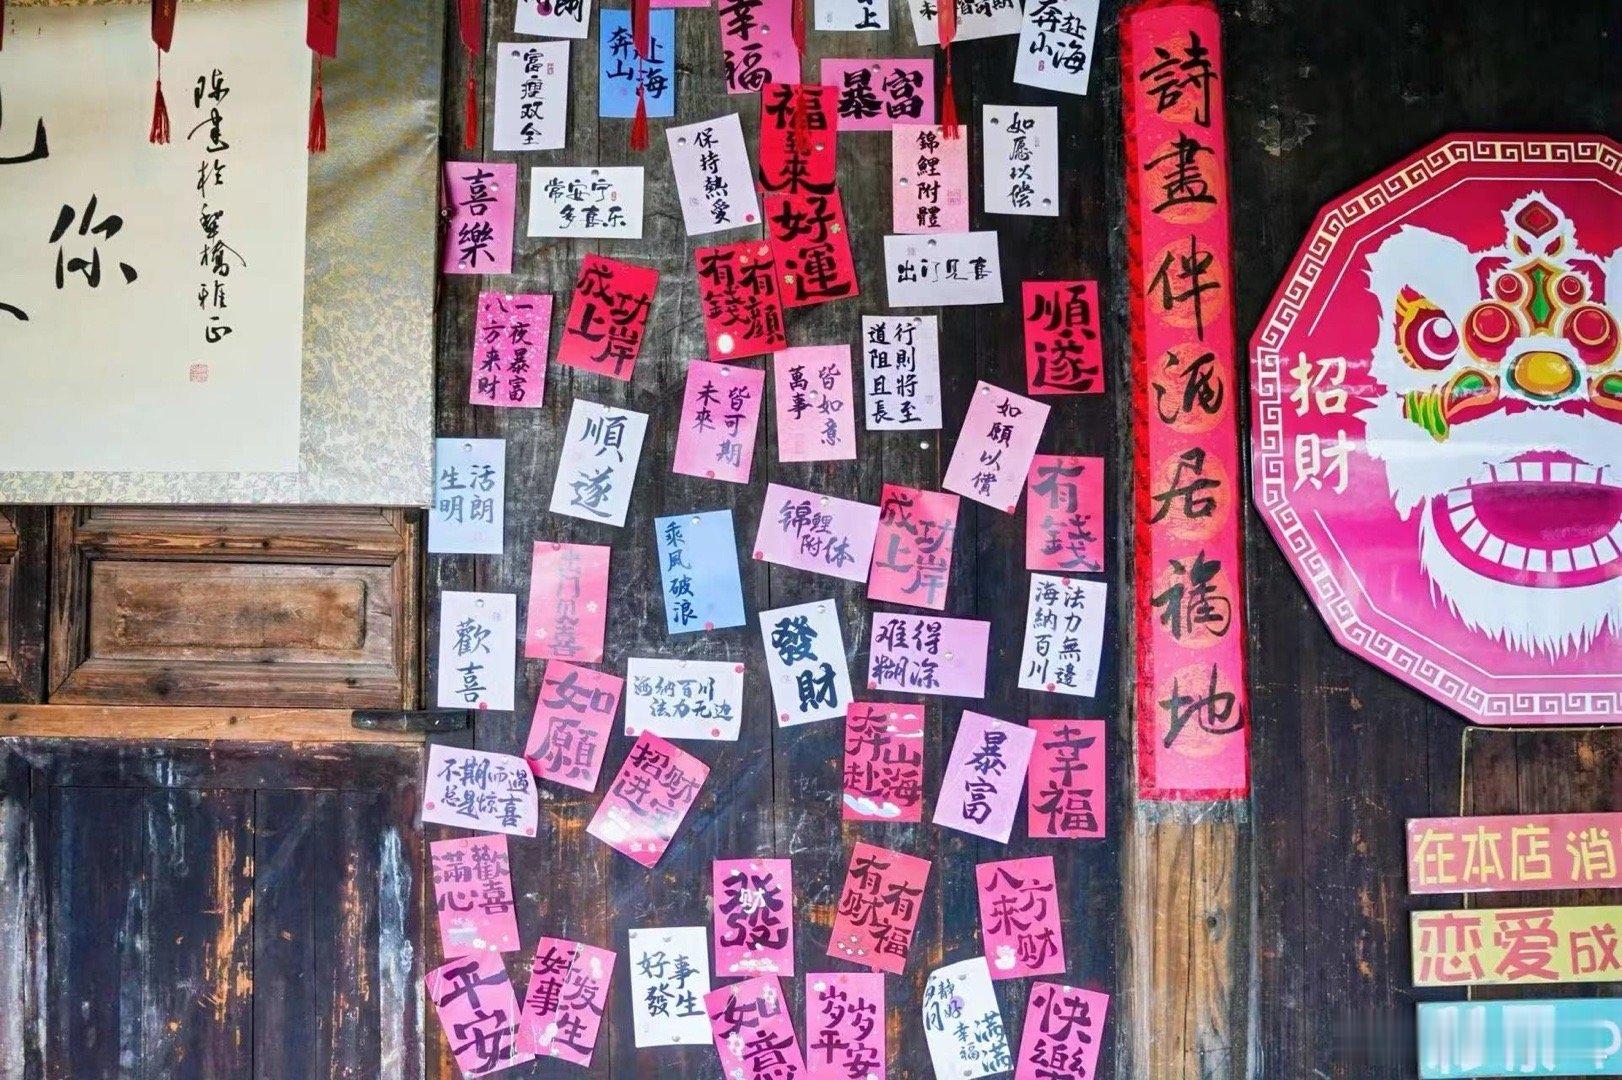 你
陈
雅正
奔山
赴海
幸福
上
奔小
赴海
富瘦双全
暴富
福到來
保持熱愛
錦鯉附體
如愿以偿
喜樂
常安宁
多喜乐
好運
出门见喜
成功
上岸
有錢
有顏
順遂
一夜暴富
八方来财
行則將至
道阻且長
皆可期
未來
皆如意
萬事
如願以償
順遂
生活
明朗
有錢
乘風破浪
錦鲤
附体
成功
上岸
出门见喜
法力無邊
海納百川
歡喜
發財
难得
糊涂
海纳百川
法力无边
如願
招财
进宝
奔山
赴海
暴富
幸福
不期而遇
总是惊喜
滿心
歡喜
發财
有财
有福
八方
来财
平安
好事
发生
好事
發生
如意
岁岁
平安
静好
幸福
满满
快樂
詩畫伴酒居福地
招財
在本店消
恋爱成